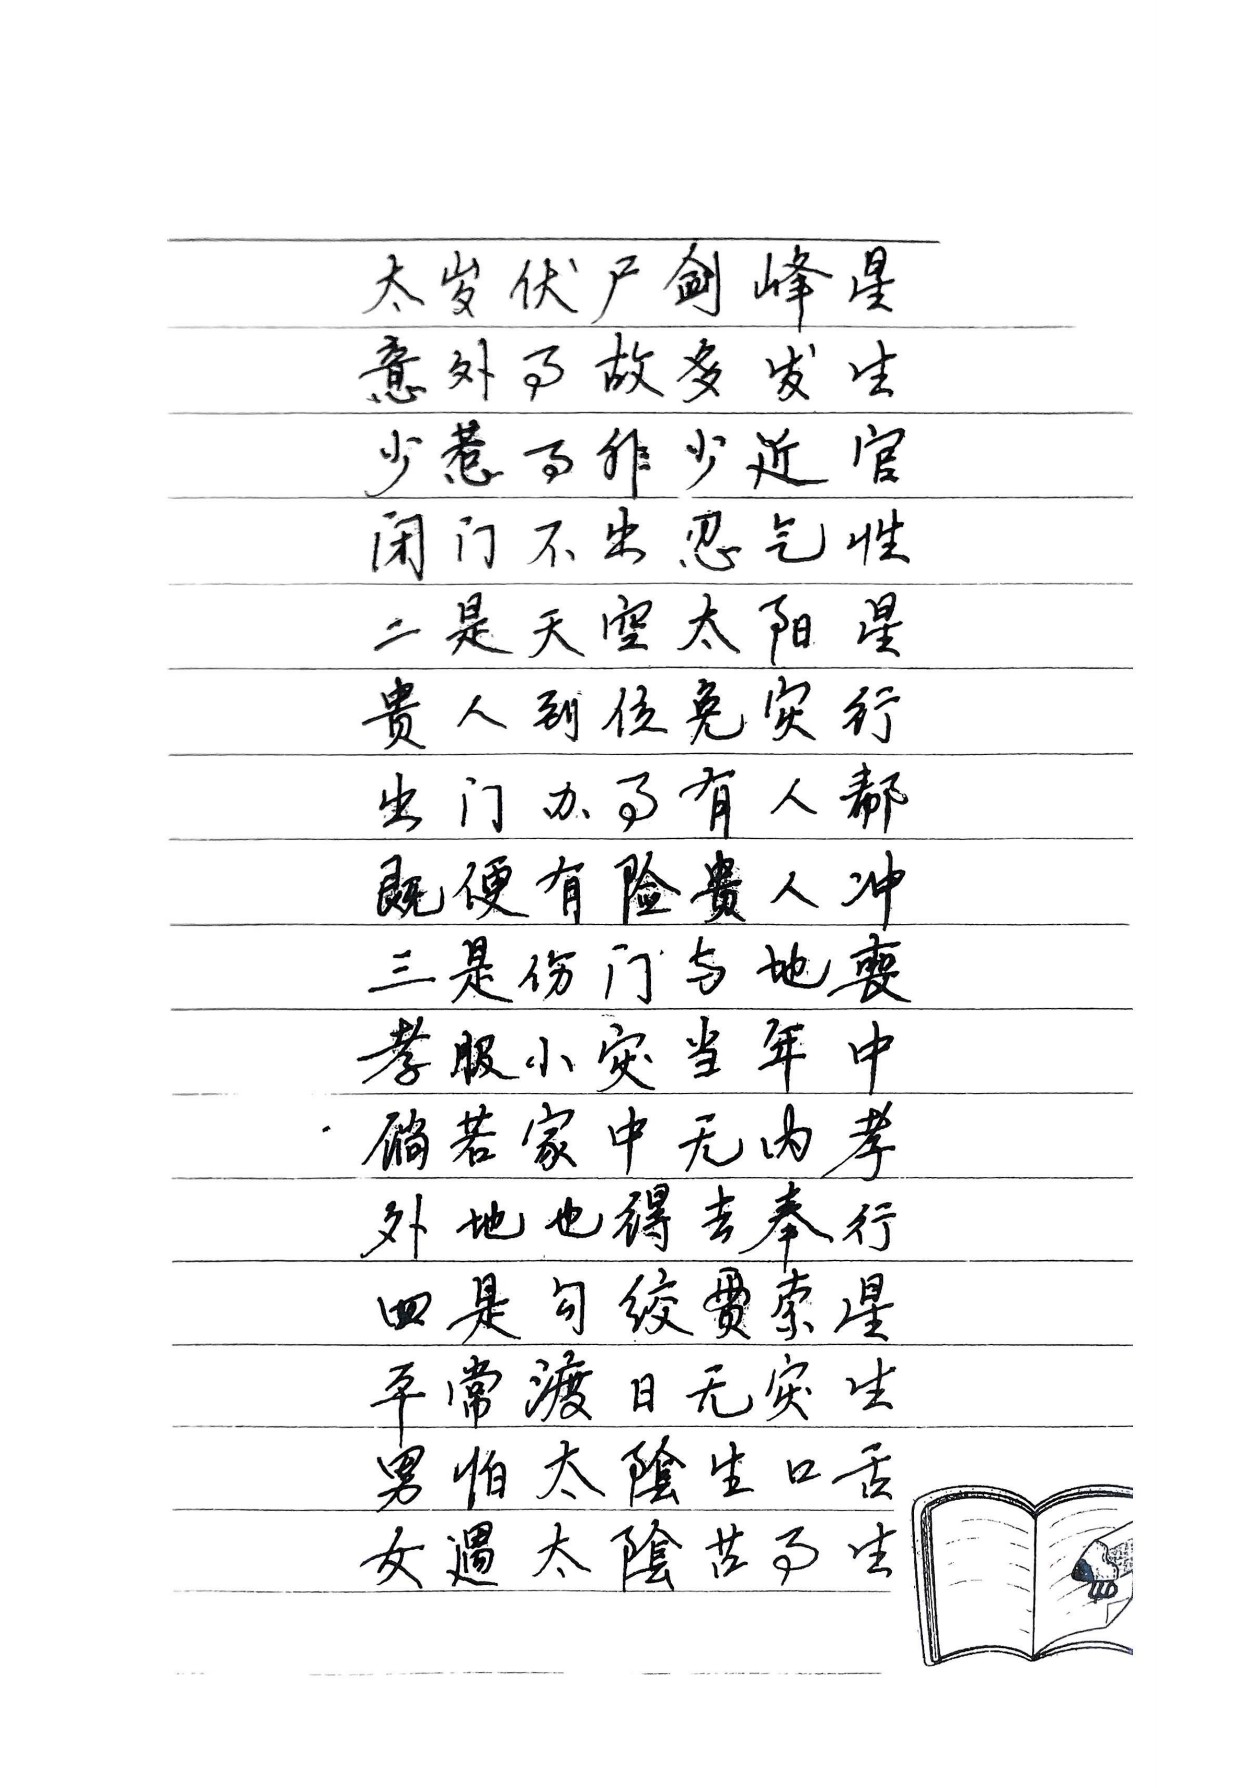 太岁伏尸剑峰星
意外事故多发生
少惹事非少近官
闭门不出忍气性
二是天空太阳星
贵人到位免灾行
出门办事有人帮
既便有险贵人冲
三是伤门与地喪
孝服小灾当年中
倘若家中无内孝
外地也得去奉行
四是勾绞贯索星
平常渡日无灾生
男怕太陰生口舌
女遇太陰苦事生